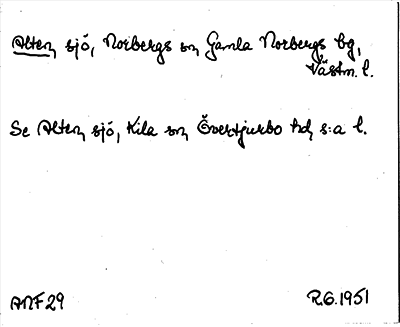 Alten, sjö, Norbergs sn, Gamla Norbergs bg,
Västm. l.
Se Alten, sjö, Kila sn, Övertjurbo hd, s:a l.
ANF 29
R.G. 1951